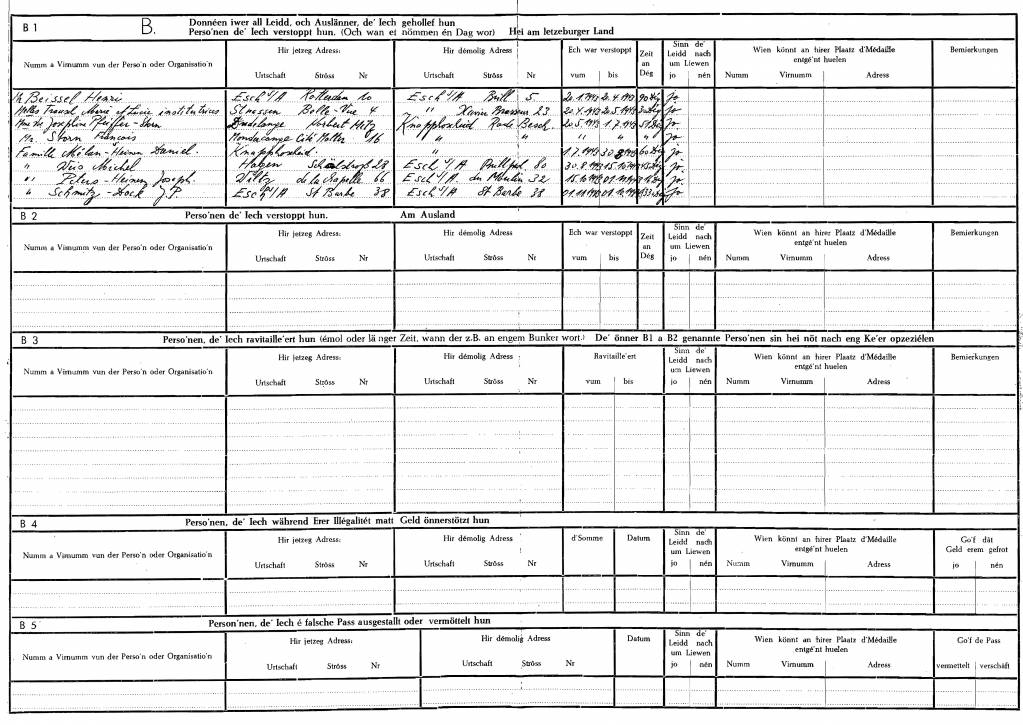 B 1 B. Donnéen iwer all Leidd, och Auslänner, de' Iech gehollef hun
Perso'nen de' Iech verstoppt hun. (Och wan et nömmen én Dag wor) Hei am letzeburger Land
Numm a Virnumm vun der Perso'n oder Organisatio'n Hir jetzeg Adress: Hir démolig Adress Ech war verstoppt Zeit an Dég Sinn de' Leidd nach um Liewen Wien könnt an hirer Plaatz d'Médaille entgé'nt huelen Bemierkungen
Urtschaft Ströss Nr Urtschaft Ströss Nr vum bis jo nén Numm Virnumm Adress
Beissel Henri Esch s/A Rotterdam 10 Esch s/A Brill 5 20.1.1943 20.4.1943 90 jo
Melles Marie et Lucie institutrices Strassen Belle-Vue 4 " Xavier Brasseur 23 20.4.1943 20.5.1943 jo
Josephine Pfeifer-Storn Dudelange Norbert Metz Knapphoscheid 20.5.1943 1.7.1943 jo
Mr. Storn François Mondercange Cité Molter 16 " " " " " jo
Famille Mélan-Heinen Daniel. Knapphoscheid. " 1.7.1943 30.8.1943 60 jo
" Michel Hagen 28 Esch s/A 80 30.8.1943 15.10.1943 jo
" Peters-Heinen Joseph. Wiltz de la chapelle 66 Esch s/A. du Moulin 32 15.10.1943 01.11.1943 jo
" Schmitz-Hock J.P. Esch s/A St Barbe 38 Esch s/A St Barbe 38 01.11.1943 jo
B 2 Perso'nen de' Iech verstoppt hun. Am Ausland
Numm a Virnumm vun der Perso'n oder Organisatio'n Hir jetzeg Adress: Hir démolig Adress Ech war verstoppt Zeit an Dég Sinn de' Leidd nach um Liewen Wien könnt an hirer Plaatz d'Médaille entgé'nt huelen Bemierkungen
Urtschaft Ströss Nr Urtschaft Ströss Nr vum bis jo nén Numm Virnumm Adress
B 3 Perso'nen, de' Iech ravitaille'ert hun (émol oder länger Zeit, wann der z.B. an engem Bunker wort.) De' önner B1 a B2 genannte Perso'nen sin hei nöt nach eng Ke'er opzeziélen
Numm a Virnumm vun der Perso'n oder Organisatio'n Hir jetzeg Adress: Hir démolig Adress Ravitaille'ert Sinn de' Leidd nach um Liewen Wien könnt an hirer Plaatz d'Médaille entgé'nt huelen Bemierkungen
Urtschaft Ströss Nr Urtschaft Ströss Nr vum bis jo nén Numm Virnumm Adress
B 4 Perso'nen, de' Iech während Erer Illégalitét matt Geld önnerstötzt hun
Numm a Virnumm vun der Perso'n oder Organisatio'n Hir jetzeg Adress: Hir démolig Adress d'Somme Datum Sinn de' Leidd nach um Liewen Wien könnt an hirer Plaatz d'Médaille entgé'nt huelen Go'f dât Geld erem gefrot
Urtschaft Ströss Nr Urtschaft Ströss Nr jo nén Numm Virnumm Adress jo nén
B 5 Person'nen, de' Iech é falsche Pass ausgestallt oder vermöttelt hun
Numm a Virnumm vun der Perso'n oder Organisatio'n Hir jetzeg Adress: Hir démolig Adress Datum Sinn de' Leidd nach um Liewen Wien könnt an hirer Plaatz d'Médaille entgé'nt huelen Go'f de Pass
Urtschaft Ströss Nr Urtschaft Ströss Nr jo nén Numm Virnumm Adress vermettelt verschäft